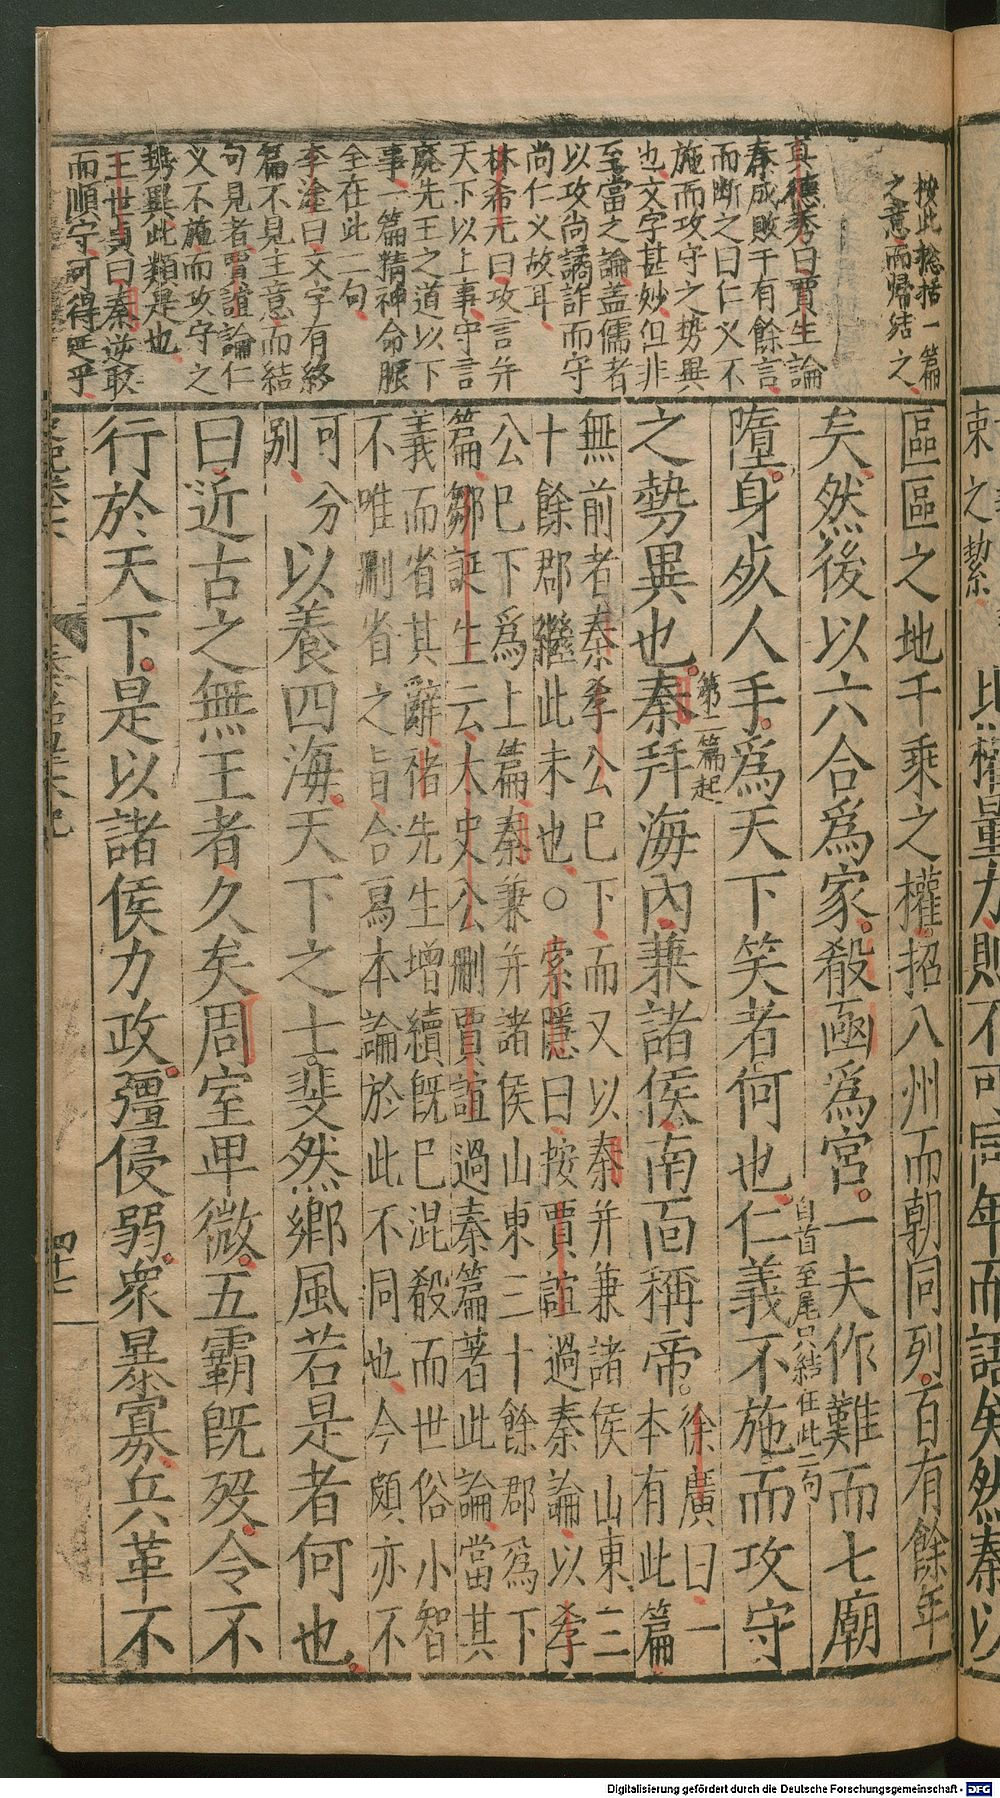 按此揔括一篇
之意而帰結之
真德秀曰賈生論
秦成敗千有餘言
而斷之曰仁义不
施而攻守之势異
也文字甚妙但非
至當之論盖儒者
以攻尚譎詐而守
尚仁义故耳
林希元曰攻言并
天下以上事守言
廃先王之道以下
事一篇精神命脈
全在此二句
李塗曰文字有終
篇不見主意而結
句見者賈誼論仁
义不施而攻守之
势異此類是也
王世貞曰秦逆取
而順守訶得延乎
區區之地千乘之權招八州而朝同列百有餘年
矣然後以六合爲家殽函爲宮一夫作難而七廟
隳身死人手爲天下笑者何也仁義不施而攻守
自首至尾只結在此二句
之勢異也秦并海內兼諸侯南面稱帝
第二篇起
徐廣曰一
本有此篇
無前者秦孝公巳下而又以秦并兼諸侯山東三
十餘郡繼此未也○索隱曰按賈誼過秦論以孝
公巳下爲上篇秦兼并諸侯山東三十餘郡爲下
篇鄒誕生云太史公刪賈誼過秦篇著此論當其
義而省其辭褚先生增續既巳混殽而世俗小智
不唯刪省之旨合冩本論於此不同也今頗亦不
可分
别
以養四海天下之士斐然鄉風若是者何也
曰近古之無王者久矣周室卑微五霸既歿令不
行於天下是以諸侯力政彊侵弱衆暴寡兵革不
四十七
束之絜
比權量力則不可同年而語矣然秦以
Digitalisierung gefördert durch die Deutsche Forschungsgemeinschaft - DFG